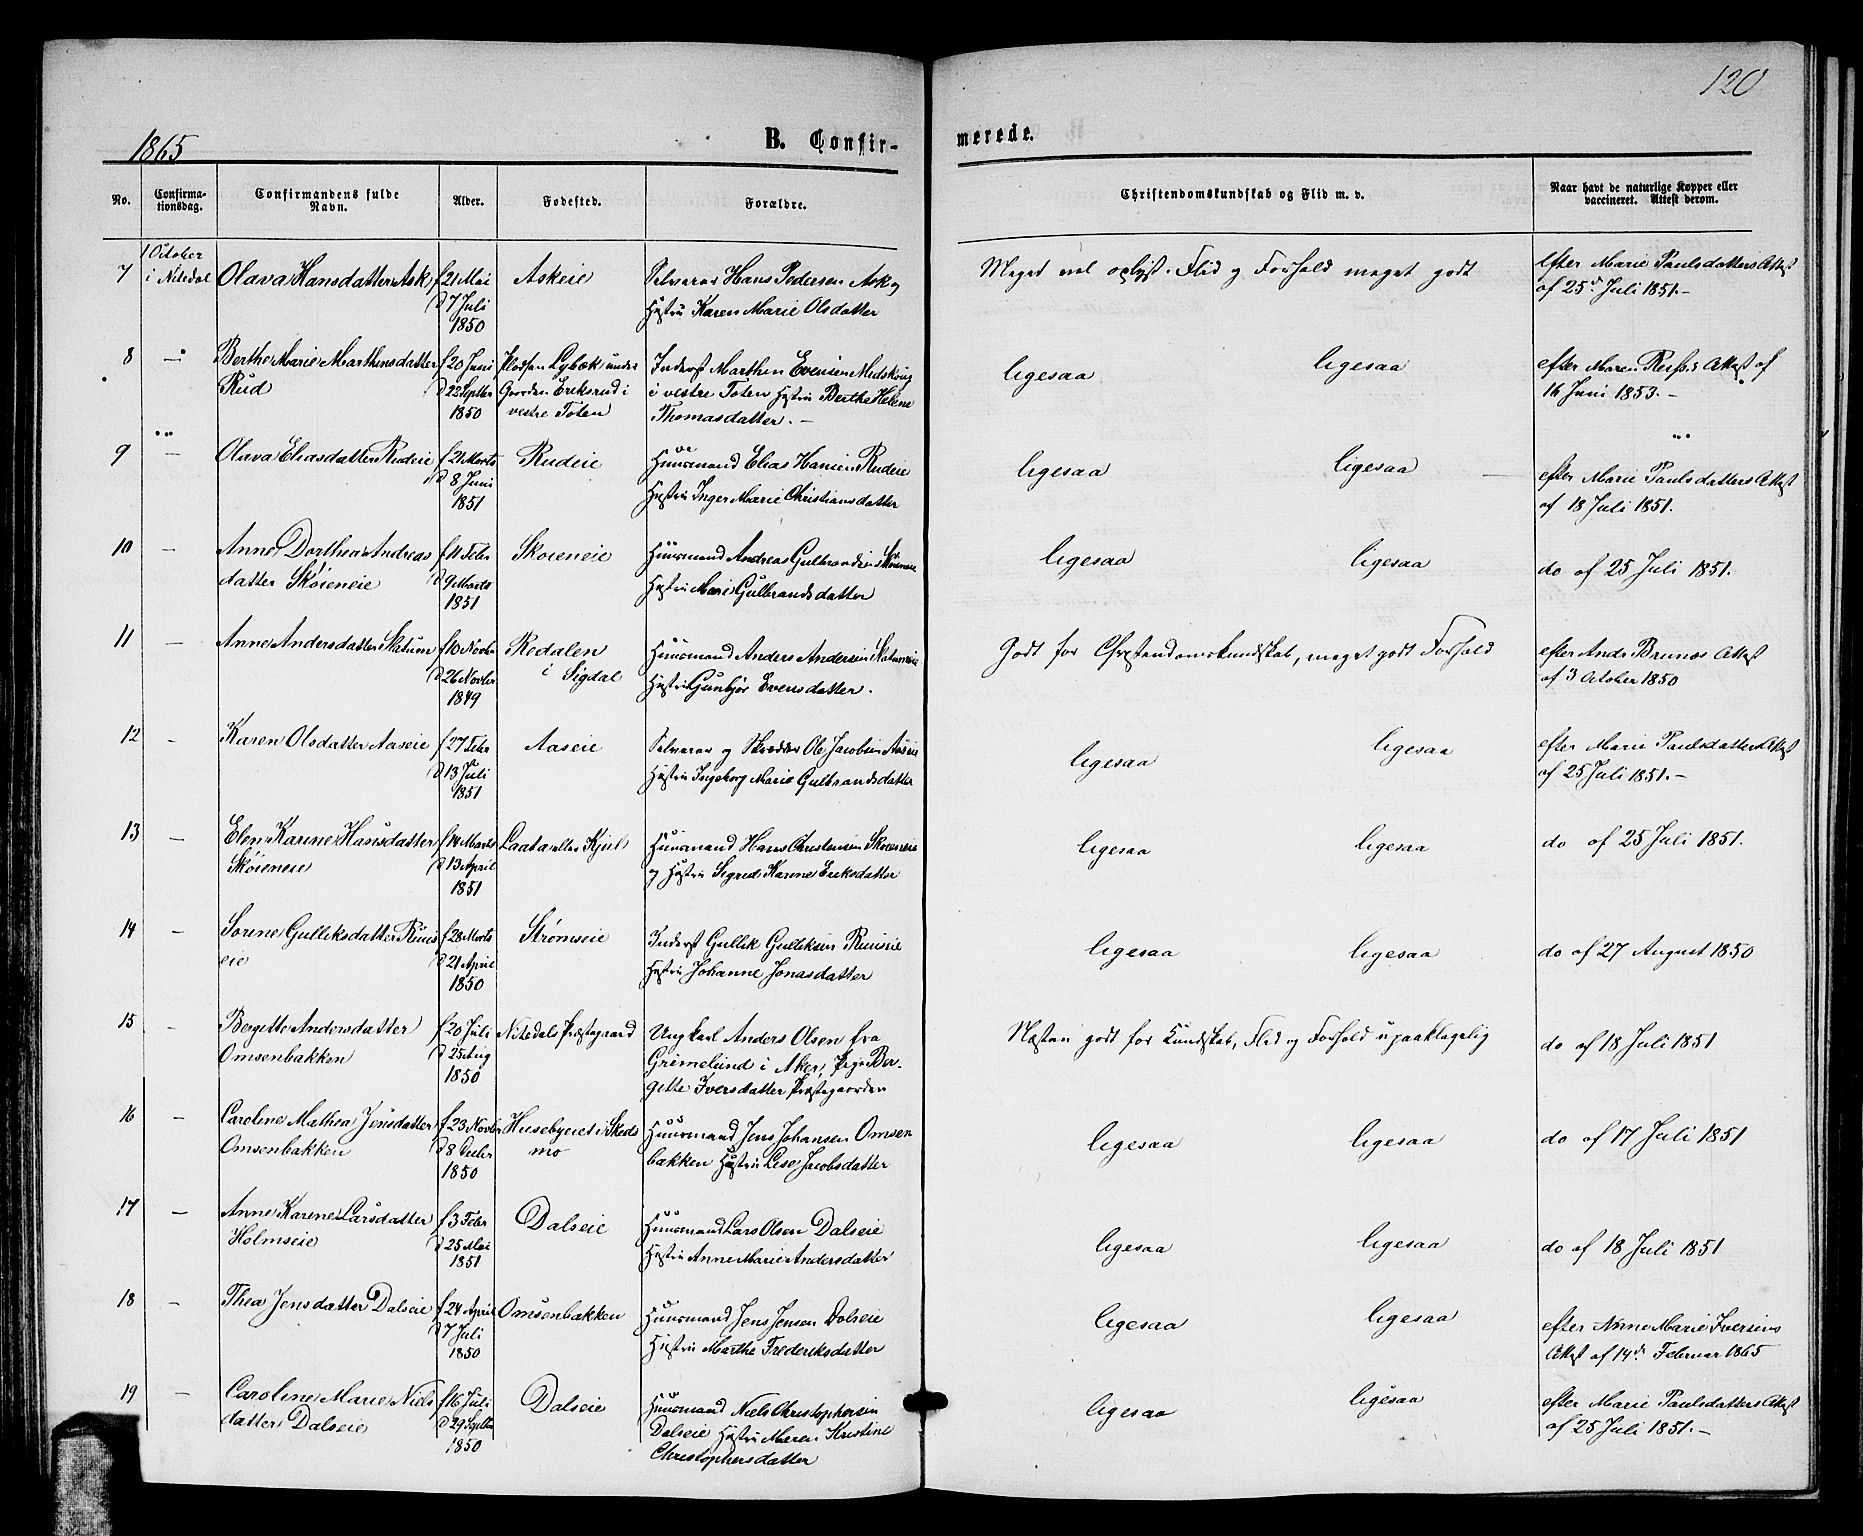 120
1865
B. Confir-
merede.
No.
Confirma-
tionsdag.
Confirmandens fulde
Navn.
Alder.
Fødested.
Forældre.
Christendomskundskab og Flid m. v.
Naar havt de naturlige Kopper eller
vaccineret. Attest derom.
1 October
7 i Nitedal Olava Hansdatter Ask f 21 Mai Askeie Selveier Hans Pedersen Ask og Meget vel oplyst. Flid og Forhold meget godt efter Marie Paulsdatters Attest
d 7 Juli Hustru Karen Marie Olsdatter af 25 Juli 1851.-
1850
8 — Berthe Marie Marthinsdatter f 20 Juni Pladsen Lybæk under Inderst Marthin Evensen Medskoug ligesaa ligesaa efter Maren Attest af
Rud d 22 Septbr Gaarden Eriksrud i i vestre Toten Hustru Berthe Helene 16 Juni 1853.-
1850 vestre Toten Thomasdatter.-
9 — Olava Eliasdatter Rudeie f 21 Marts Rudeie Huusmand Elias Hansen Rudeie ligesaa ligesaa efter Marie Paulsdatters Attest
d 8 Juni Hustru Inger Marie Christiansdatter af 18 Juli 1851.
1851
10 — Anne Dorthea Andreas f 11 Febr Skøieneie Huusmand Andreas Gulbrandsen Skøieneie ligesaa ligesaa do af 25 Juli 1851.
datter Skøieneie d 9 Marts Hustru Mari Gulbrandsdatter
1851
11 — Anne Andersdatter Skatum f 10 Novbr Redalen Huusmand Anders Andersen Skatumeie Godt for Christendomskundskab, meget godt Forhold efter Brunos Attest
d 26 Novbr i Sigdal Hustru Gunbjør Evensdatter. af 3 October 1850
1849
12 — Karen Olsdatter Aaseie f 27 Febr Aaseie Selveier og Skrædder Ole Jacobsen Aaseie ligesaa ligesaa efter Marie Paulsdatters Attest
d 13 Juli Hustru Ingeborg Marie Gulbrandsdatter af 25 Juli 1851.-
1851
13 — Elen Karine Hansdatter f 14 Marts Laata eller Kjul Huusmand Hans Christensen Skøieneie ligesaa ligesaa do af 25 Juli 1851.
Skøieneie d 13 April og Hustru Sigrid Karine Eriksdatter
1851
14 — Sorine Gulliksdatter Ruus f 28 Marts Strømseie Inderst Gullik Gulliksen Ruuseie ligesaa ligesaa do af 27 August 1850
eie d 21 April Hustru Johanne Jonasdatter
1850
15 — Bergitte Andersdatter f 20 Juli Nitedals Præstegaard Ungkarl Anders Olsen fra Næsten godt for Kundskab, Flid og Forhold upaaklagelig do af 18 Juli 1851
Omsenbakken d 25 Aug Grimelund i Aker, Pige Ber-
1850 gitte Iversdatter Præstegaarden
16 — Caroline Mathea Jensdatter f 23 Novbr Husebyeret i Skeds Huusmand Jens Johansen Omsen ligesaa ligesaa do af 17 Juli 1851
Omsenbakken d 8 Decbr mo bakken Hustru Lise Jacobsdatter
1850
17 — Anne Karine Larsdatter f 3 Febr Dalseie Huusmand Lars Olsen Dalseie ligesaa ligesaa do af 18 Juli 1851
Holmseie d 25 Mai Hustru Anne Marie Andersdatter
1851
18 — Thea Jensdatter Dalseie f 24 April Omsenbakken Huusmand Jens Jensen Dalseie ligesaa ligesaa efter Anne Marie Iversens
d 7 Juli Hustru Marthe Frederiksdatter Attest af 14de Februar 1865
1850
19 — Caroline Marie Niels f 16 Juli Dalseie Huusmand Niels Christophersen ligesaa ligesaa efter Marie Paulsdatters Attest
datter Dalseie d 29 Septbr Dalseie Hustru Maren Kristine af 25 Juli 1851.-
1850 Christophersdatter